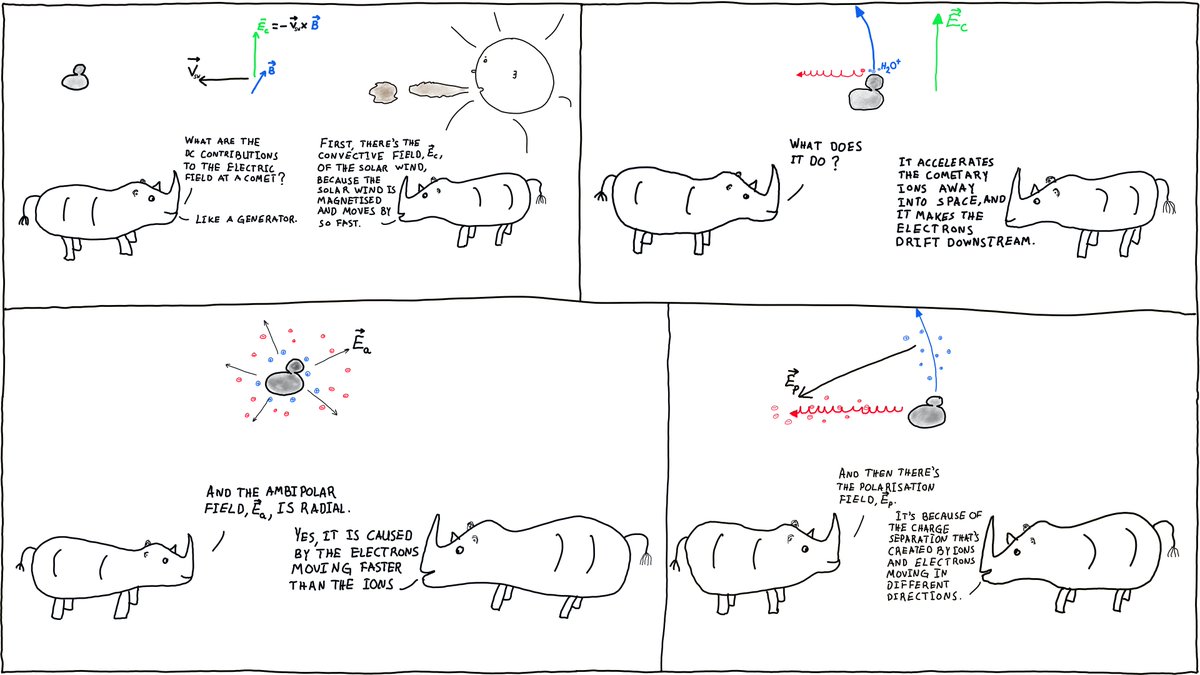 E⃗c = -v⃗sw x B⃗
v⃗sw
B⃗
What are the
DC contributions
to the electric
field at a comet?
Like a generator.
First, there's the
convective field, E⃗c,
of the solar wind,
because the
solar wind is
magnetised
and moves by
so fast.
E⃗c
H2O+
What does
it do?
It accelerates
the cometary
ions away
into space, and
it makes the
electrons
drift downstream.
E⃗a
And the ambipolar
field, E⃗a, is radial.
Yes, it is caused
by the electrons
moving faster
than the ions
E⃗p
And then there's
the polarisation
field, E⃗p.
It's because of
the charge
separation that's
created by ions
and electrons
moving in
different
directions.